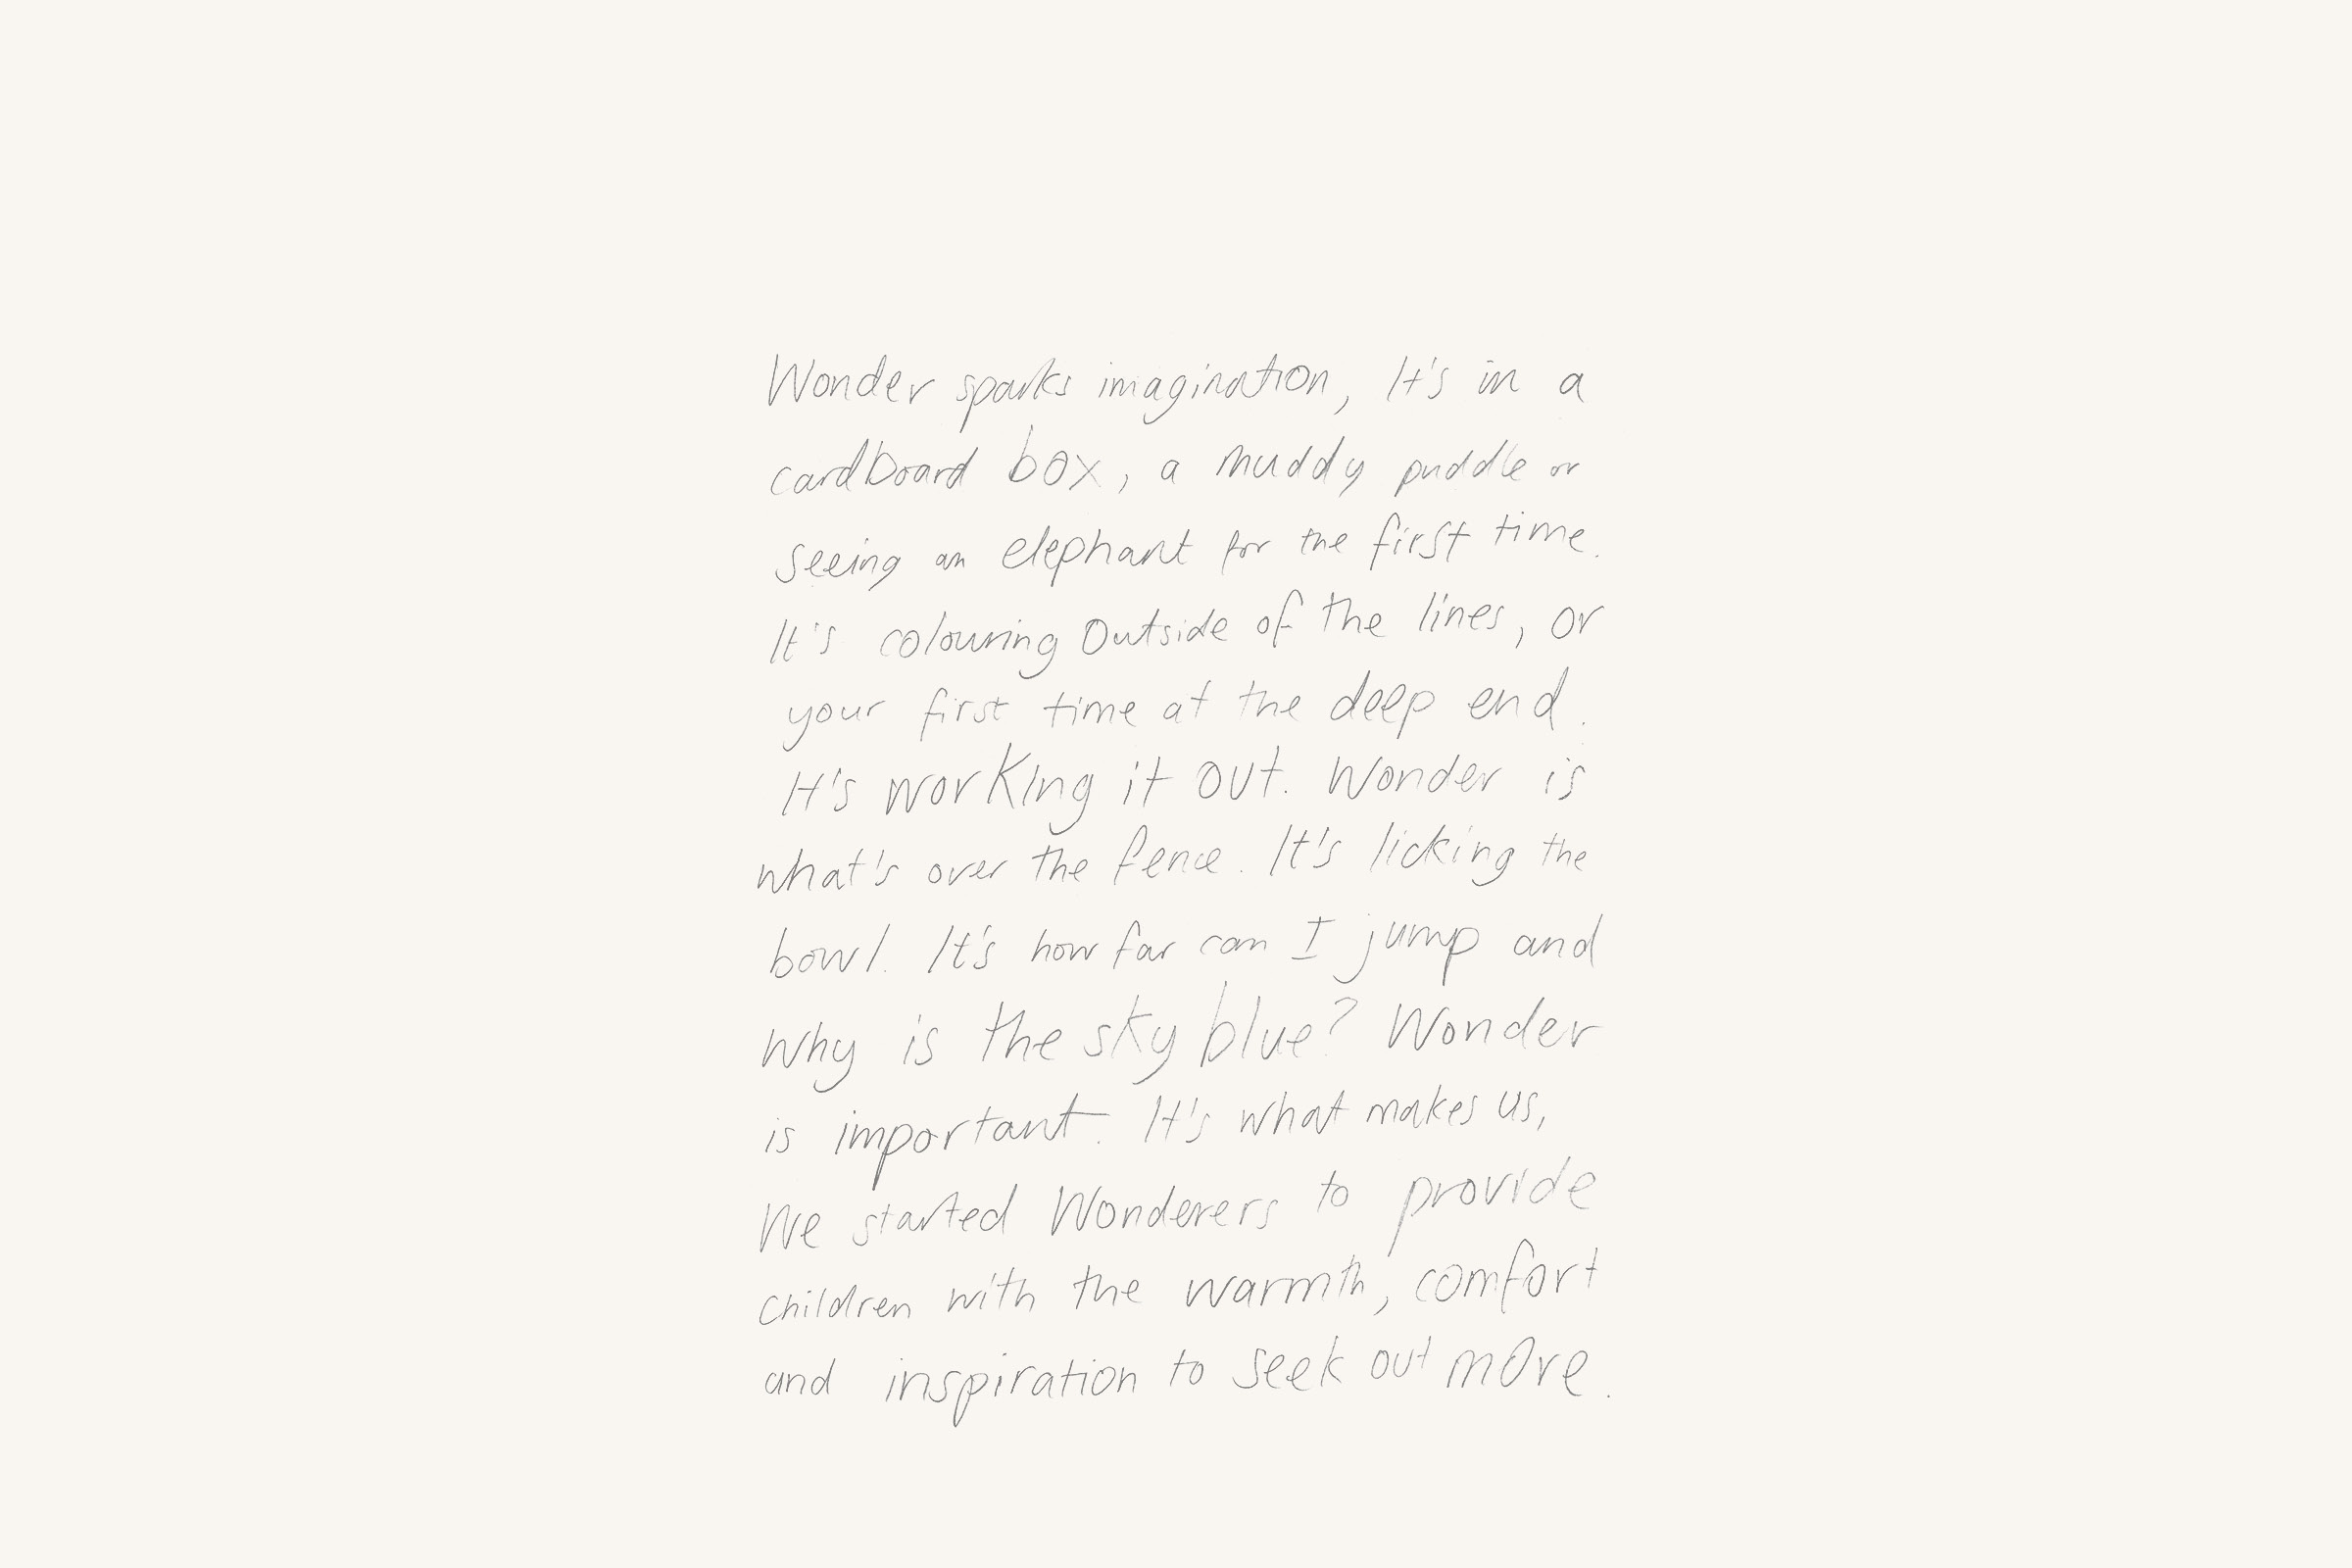 Wonder sparks imagination, It's in a
cardboard box, a muddy puddle or
seeing an elephant for the first time.
It's colouring outside of the lines, or
your first time at the deep end.
It's working it out. Wonder is
what's over the fence. It's licking the
bowl. It's how far can I jump and
why is the sky blue? Wonder
is important. It's what makes us,
We started Wonderers to provide
children with the warmth, comfort
and inspiration to seek out more.